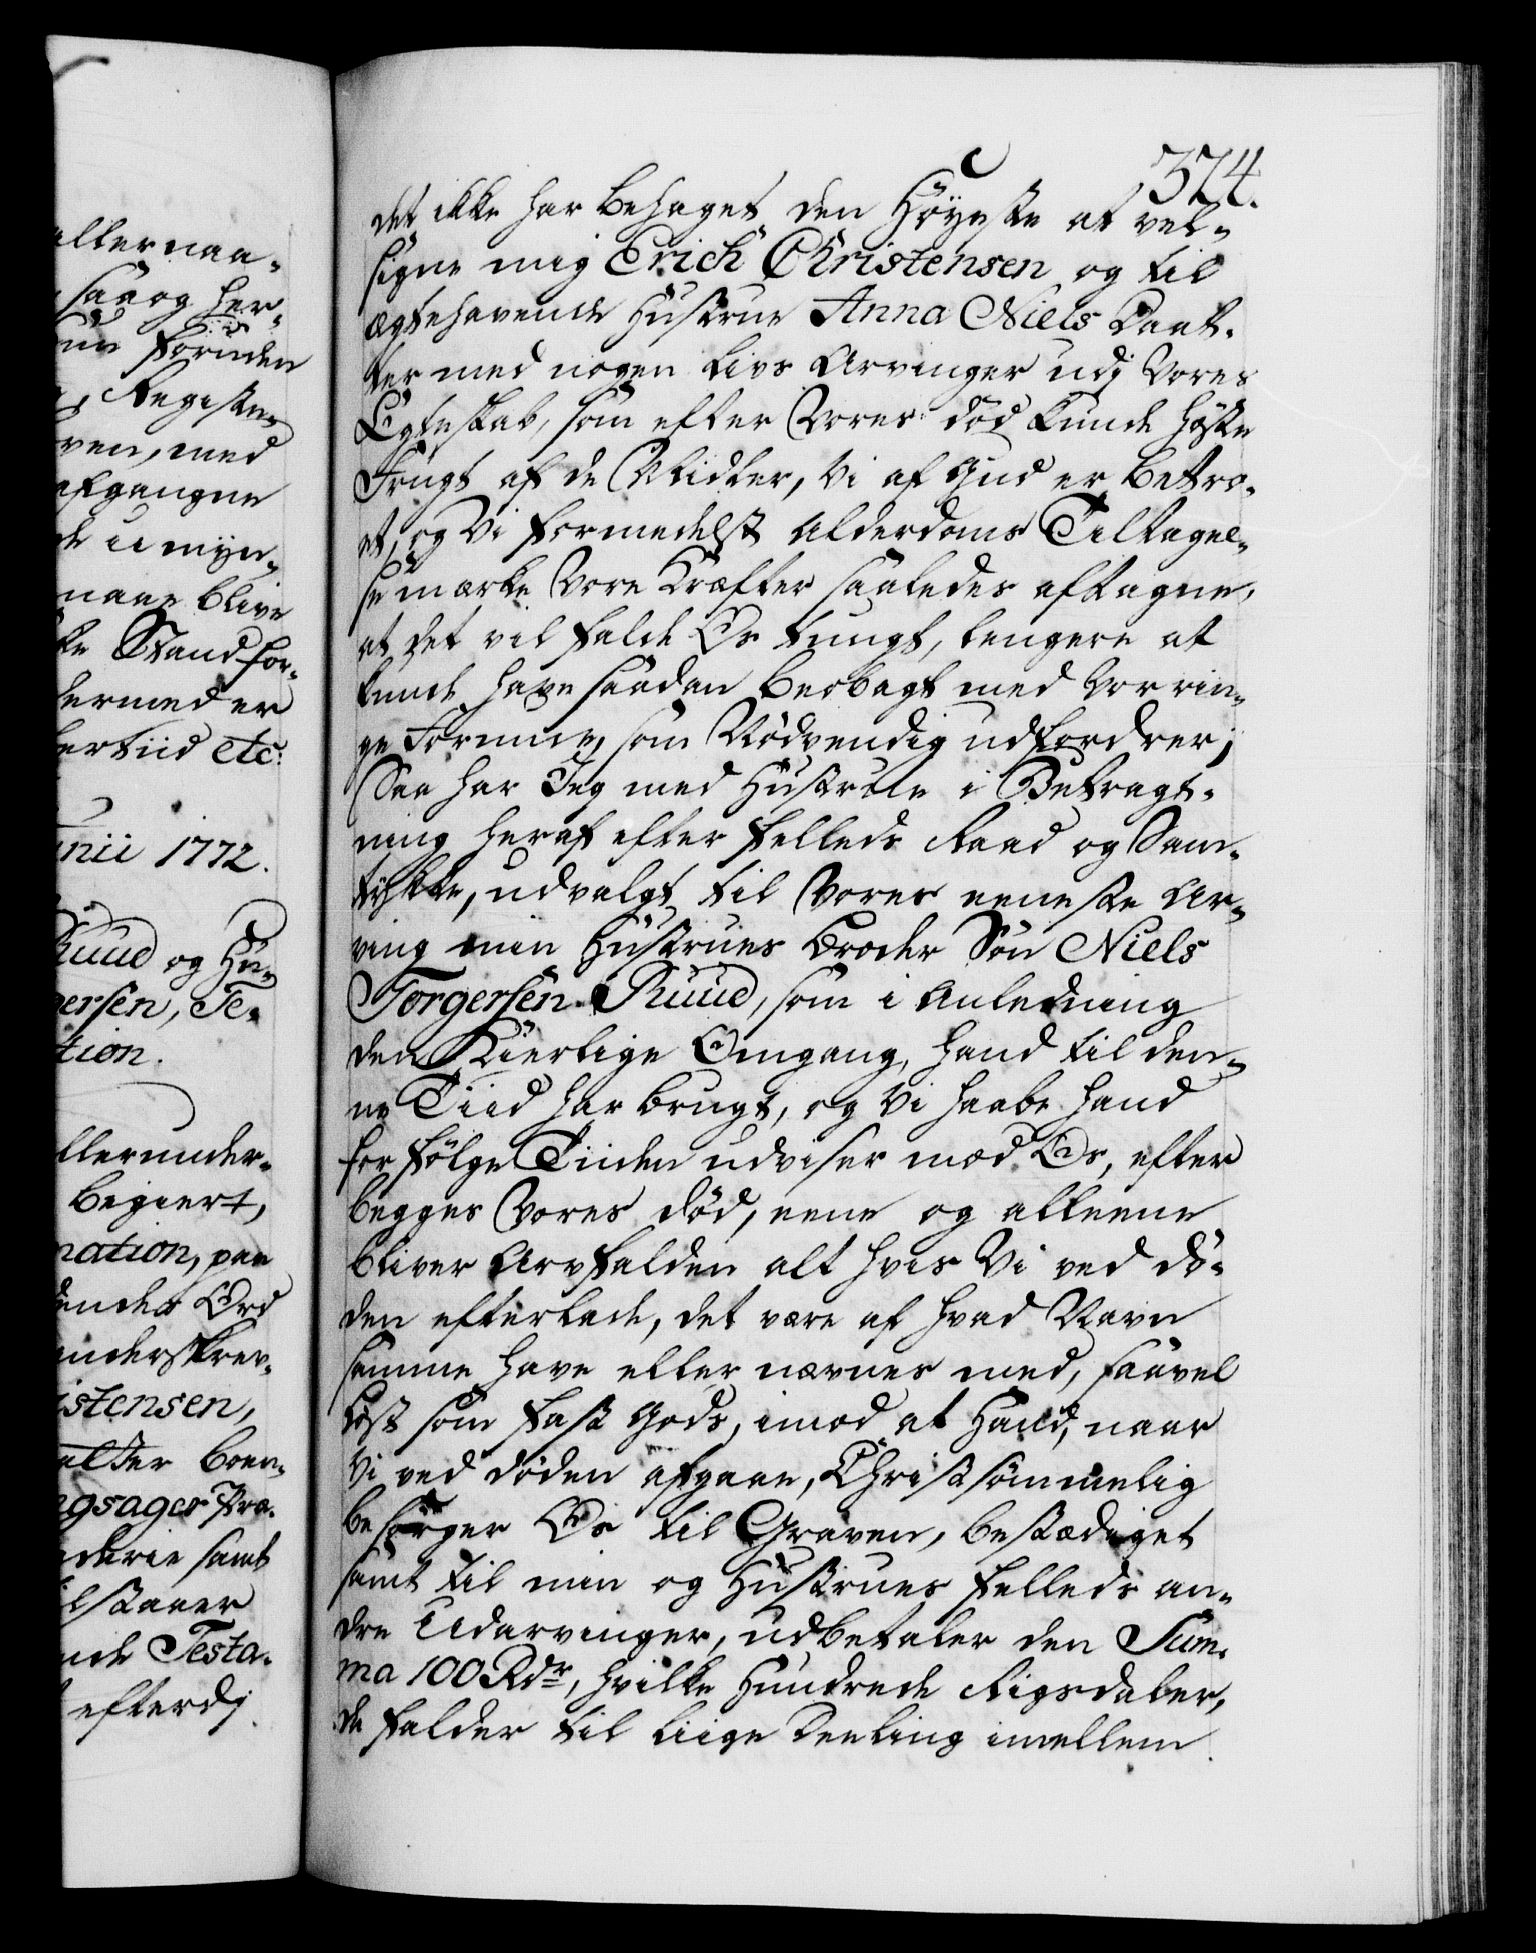 allernaa-
saa og her-
foruden
Registe-
ven, med
afgangne
u myn-
maae blive
Stand for-
hermed er
tiid etc:
Junii 1772.
Ruud og Hu-
gersen, Te-
tion.
allerunder-
begiert,
mation, paa
lydende Ord
underskrev-
istensen,
ngsager Pro-
derie samt
ilstaaer
Testa-
efterdj
374.
det ikke har behaget den Høyeste at vel-
signe mig Erich Christensen og til
ægtehavende Hustrue Anna Niels Daat-
ter med nogen Livs Arvinger udj Vores
Egteskab, som efter Vores død kunde høste
Frugt af de Midler, Vi af Gud er betro-
et, og Vi formedelst Alderdoms Tiltagel-
se mærke Vore Kræfter saaledes aftagne,
at det vil falde Os tungt, lengere at
kunde have saadan Beobagt med Vor rin-
ge Formue, som Nødvendig udfordrer;
Saa har Jeg med Hustrue i Betragt-
ning heraf efter felleds Raad og Sam-
tykke, udvalgt til Vores eeneste Ar-
ving min Hustrues Broder Søn Niels
Torgersen Ruud, som i Anledning
den Kierlige Omgang, hand til den-
ne Tiid har brugt, og Vi haabe hand
for følge Tiiden udviser mod Os, efter
begges Vores død, eene og alleene
bliver Arvfalden alt hvis Vi ved dö-
den efterlade, det være af hvad Navn
samme have eller nævnes med, saavel
Løst som fast Gods, imod at Hand, naar
Vi ved døden afgaae, Christsømmelig
besørger Os til Graven, bestædiget
samt til min og Hustrues felleds an-
dre Udarvinger, udbetaler den Sum-
ma 100 Rdr, hvilke Hundrede Rigsdaler,
de falder til liige Deeling imellem